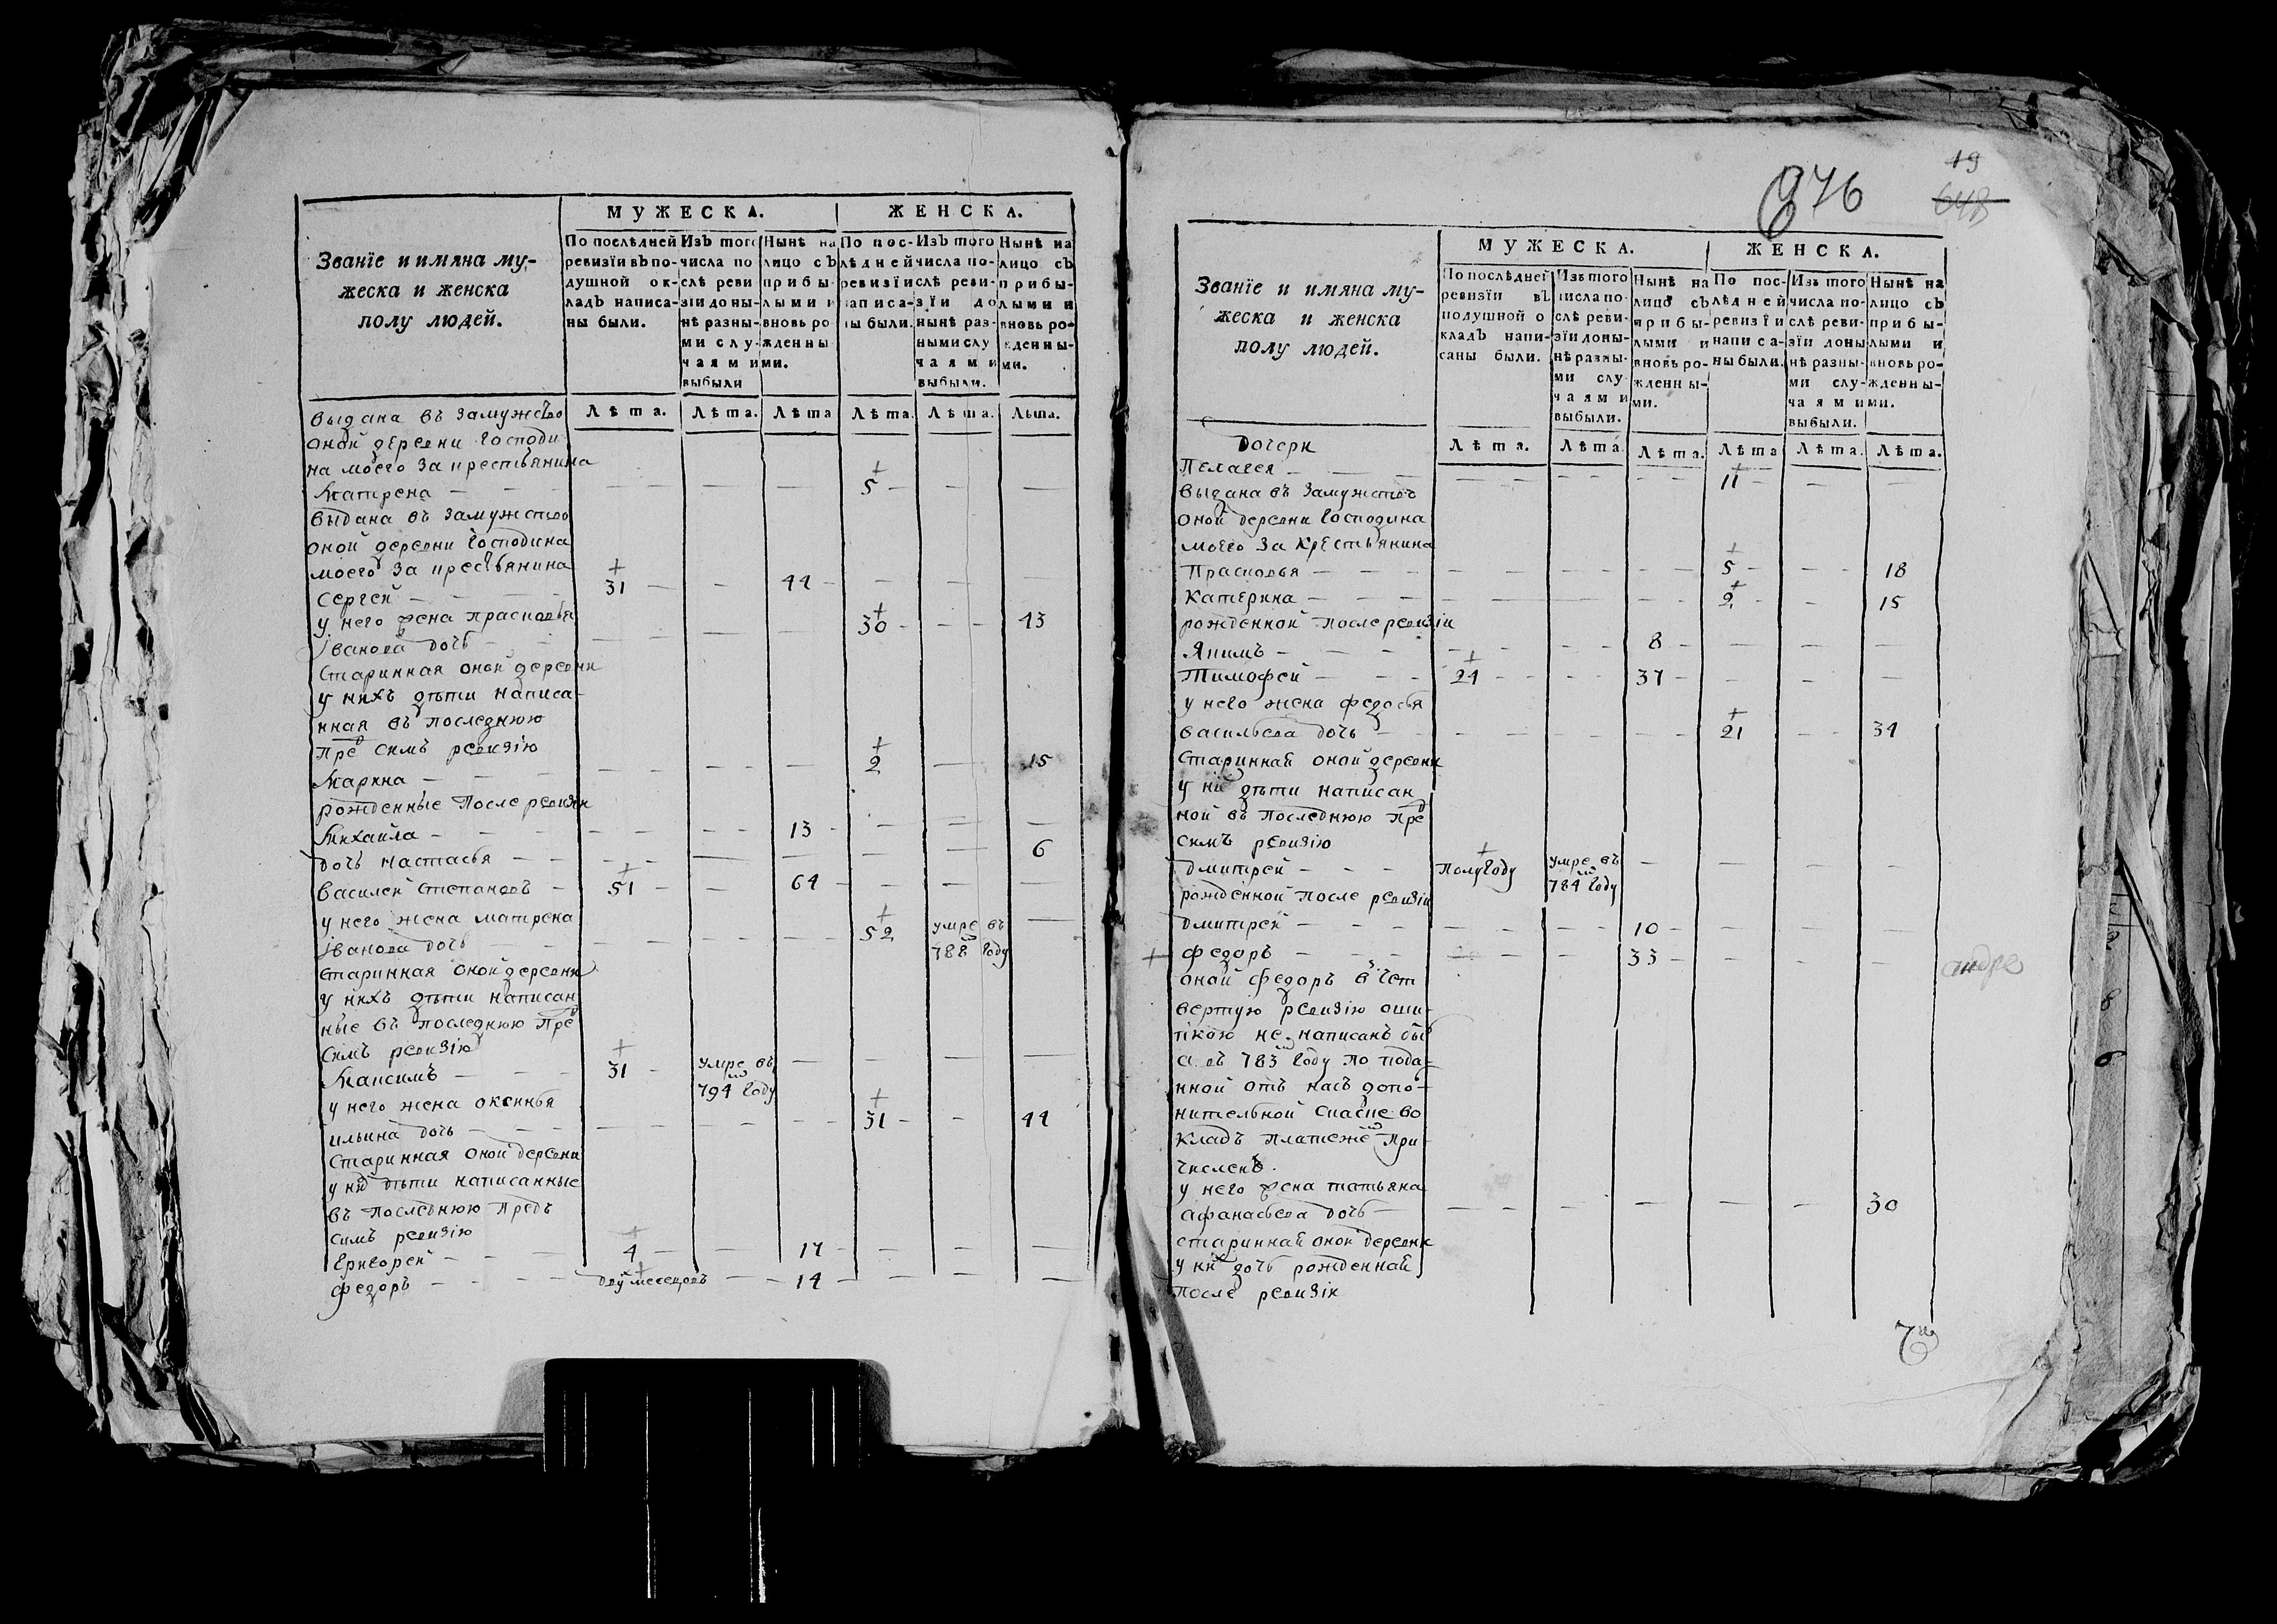 Званїе и имяна му-
жеска и женска
полу людей.
МУЖЕСКА.
ЖЕНСКА.
По послѣдней
ревизїи въ по-
душной ок-
ладъ написа-
ны были.
Изъ того
числа по
слѣ реви
зїи доны-
нѣ разны-
ми слу-
чаями
выбыли
Нынѣ на
лицо съ
прибы-
лыми и
вновь ро
жденны
ми.
По пос-
лѣдней
ревизїи
написа-
ны были.
Изъ того
числа по-
слѣ реви-
зїи до
нынѣ раз-
ными слу
чаями
выбыли.
Нынѣ на
лицо съ
прибы-
лыми и
вновь ро-
жденны-
ми.
Лѣта. Лѣта. Лѣта Лѣта. Лѣта. Лѣта.
выдана въ замужство
оной деревни Господи
на моего за крестьянина
Матрена 5
выдана въ замужство
оной деревни Господина
моего за крестьянина
Сергей 31 44
у него жена прасковья
Іванова дочь 30 43
Старинная оной деревни
у нихъ дѣти написа-
нная въ последнюю
пред симъ ревизію
Марина 2 15
рожденные После ревизи
Михаила 13
дочь настасья 6
василей степановъ 51 64
у него жена матрена
Іванова дочь 52 умре въ 788 году
Старинная оной деревни
у нихъ дѣти написан
ные въ последнюю пред
Симъ ревизію
Максимъ 31 умре въ 794 году
у него жена оксинья
ильина дочь 31 44
Старинная оной деревни
у них дѣти написанные
въ последнюю предъ
симъ ревизію
Григорей 4 17
федоръ двумесецовъ 14
676
19
648
Званїе и имяна му-
жеска и женска
полу людей.
МУЖЕСКА.
ЖЕНСКА.
По послѣдней
ревизїи въ
подушной о
кладъ напи-
саны были.
Изъ того
числа по-
слѣ реви-
зїи доны-
нѣ разны-
ми слу
чаями
выбыли.
Нынѣ на
лицо съ
прибы-
лыми и
вновь ро-
жденны-
ми.
По пос-
лѣдней
ревизїи
написа-
ны были.
Изъ того
числа по-
слѣ реви-
зїи доны
нѣ разны-
ми слу-
чаями
выбыли.
Нынѣ на
лицо съ
прибы-
лыми и
вновь ро-
жденны-
ми.
Лѣта. Лѣта. Лѣта. Лѣта Лѣта. Лѣта.
дочери
Пелагея 11
выдана въ замужство
оной деревни Господина
моего за Крестьянина
Прасковья 5 18
Катерина 2 15
рожденной после ревизіи
Якимъ 8
Тимофей 24 37
у него жена федосья
васильева дочь 21 34
Стариннай оной деревни
у них дѣти написан
ной въ последнюю пред
симъ ревизію
дмитрей Полугоду умре въ 784 году
рожденной после ревизіи
дмитрей 10
+ федоръ 33
андре
оной федоръ в чет
вертую ревизію оши-
пкою не написанъ был
а въ 783 году по пода-
нной отъ насъ допо-
нительной Сказке во
кладъ платежей при-
численъ.
у него жена татьяна
афанасьева дочь 30
стариннай оной деревни
у них дочь рожденнай
после ревизіи
7